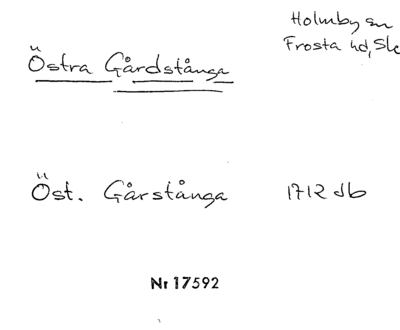 Holmby sn
Frosta hd, Sk
Östra Gårdstånga
Öst. Gårstånga 1712 db
Nr 17592